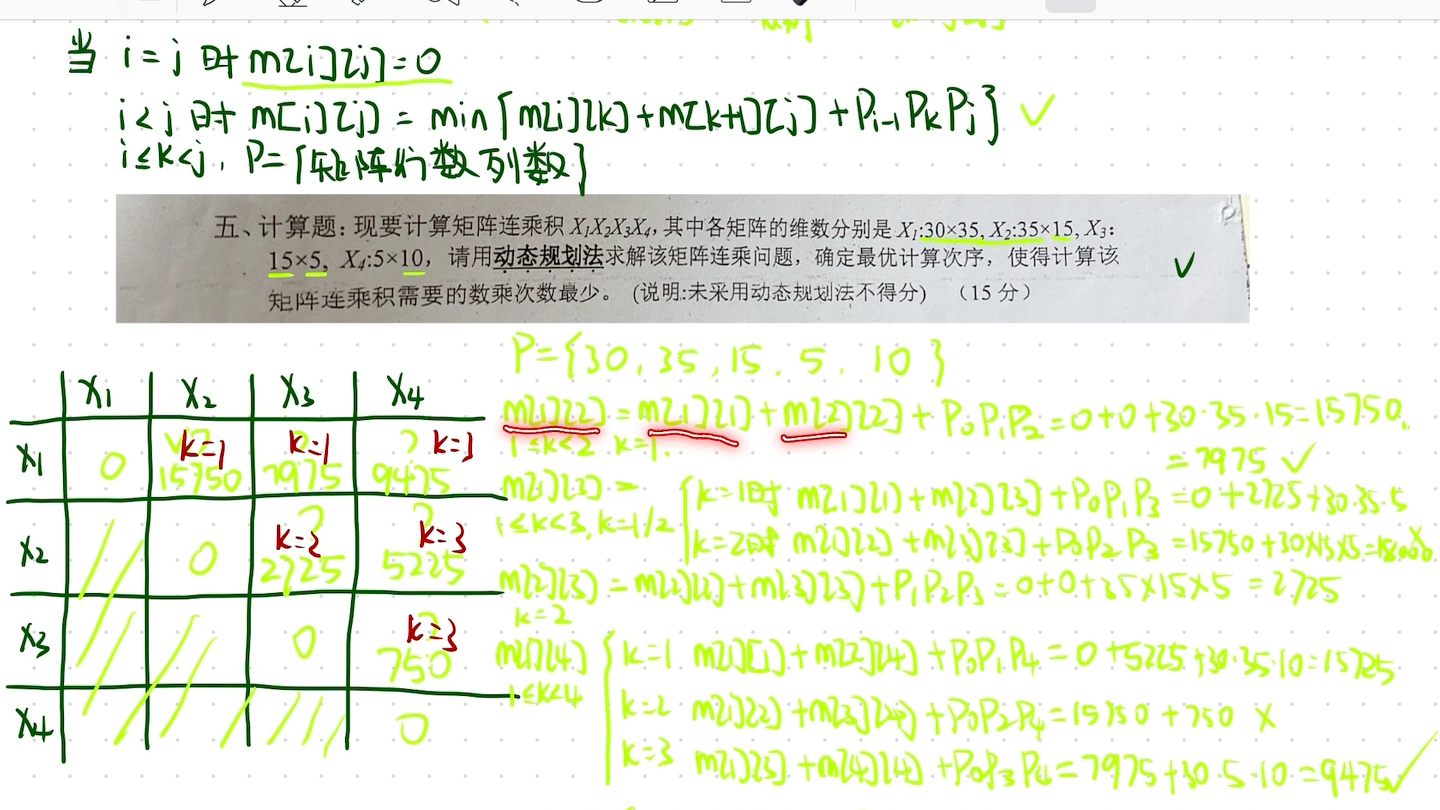 当 i=j 时 m[i][j]=0
i<j 时 m[i][j] = min{m[i][k]+m[k+1][j]+Pi-1PkPj} ✓
i≤k<j, P={矩阵行数列数}
五、计算题：现要计算矩阵连乘积 X₁X₂X₃X₄, 其中各矩阵的维数分别是 X₁:30×35, X₂:35×15, X₃:
15×5, X₄:5×10，请用动态规划法求解该矩阵连乘问题，确定最优计算次序，使得计算该
矩阵连乘积需要的数乘次数最少。 (说明:未采用动态规划法不得分) （15 分） ✓
P={30, 35, 15, 5, 10}
X₁ X₂ X₃ X₄
X₁ 0 k=1 15750 k=1 7975 k=3 9475
X₂ 0 k=2 2725 k=3 5225
X₃ 0 k=3 750
X₄ 0
m[1][2] = m[1][1] + m[2][2] + P₀P₁P₂ = 0+0+30·35·15=15750.
1≤k<2 k=1.
= 7975 ✓
m[1][3] = { k=1时 m[1][1]+m[2][3]+P₀P₁P₃ = 0+2725+30·35·5
1≤k<3, k=1/2 k=2时 m[1][2]+m[3][3]+P₀P₂P₃ =15750+30×15×5=18000 X
m[2][3] = m[2][2]+m[3][3]+P₁P₂P₃=0+0+35×15×5 = 2725
k=2
m[1][4] { k=1 m[1][1]+m[2][4]+P₀P₁P₄ = 0+5225+30·35·10=15725
1≤k<4 k=2 m[1][2]+m[3][4]+P₀P₂P₄=15750+750 X
k=3 m[1][3]+m[4][4]+P₀P₃P₄=7975+30·5·10=9475 ✓